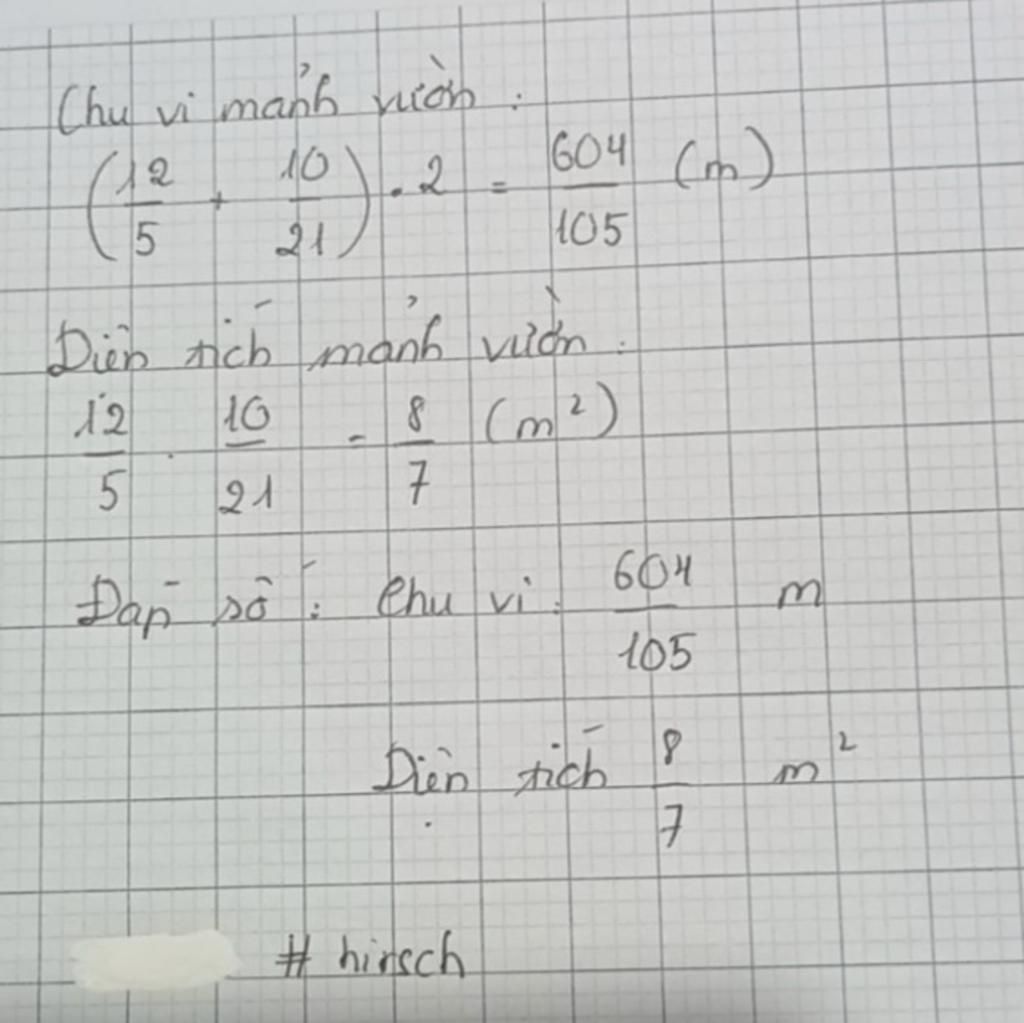 Chu vi mảnh vườn :
(12/5 + 10/21) . 2 = 604/105 (m)
Diện tích mảnh vườn :
12/5 . 10/21 = 8/7 (m²)
Đáp số : Chu vi : 604/105 m
Diện tích 8/7 m²
# hirsch